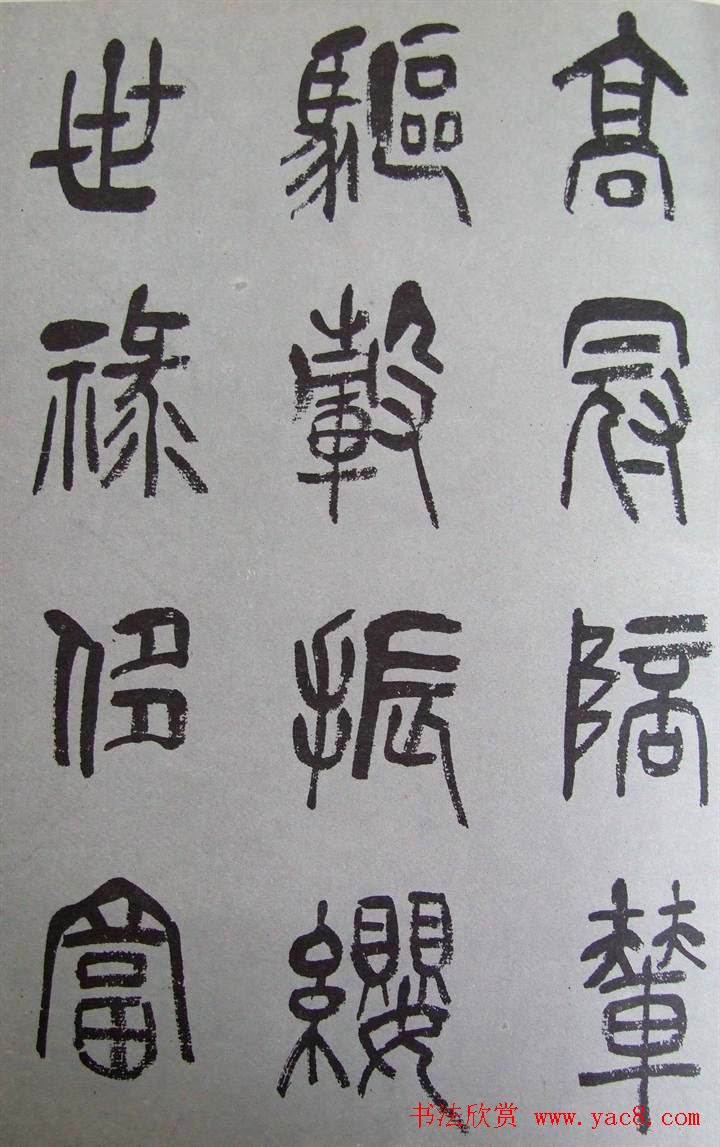 高冠陪輦
驅轂振纓
世祿侈富
书法欣赏 www.yac8.com